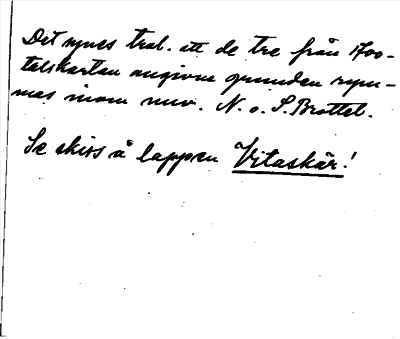 Det synes trol. att de tre från 1700-
talskartan angivna grunden rym-
mas inom nuv. N. o. S. Brottet.
Se skiss å lappen Vitaskär!